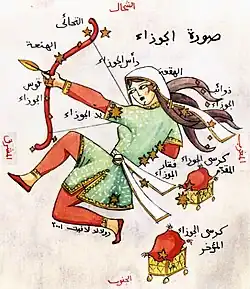 الشمال
صورة الجوزاء
التحائي
رأس الجوزاء
الهنعة
الهقعة
ذوائب
الجوزاء
قوس
الجوزاء
يد الجوزاء
المشرق
المغرب
كرسي الجوزاء
المقدم
فقار
الجوزاء
كرسي الجوزاء
المؤخر
٢٠٠١
الجنوب